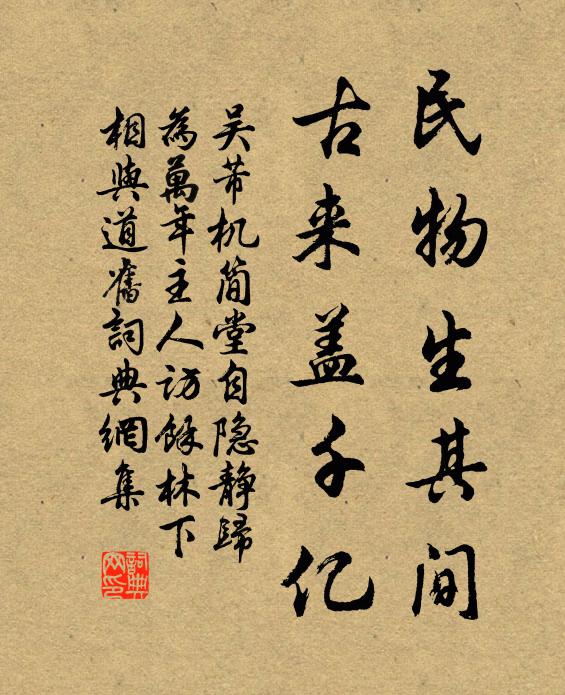 民物生其间
古来盖千亿
吴芾机简堂自隐静归
為萬年主人访馀林下
相與道舊詞典網集
詞典网印